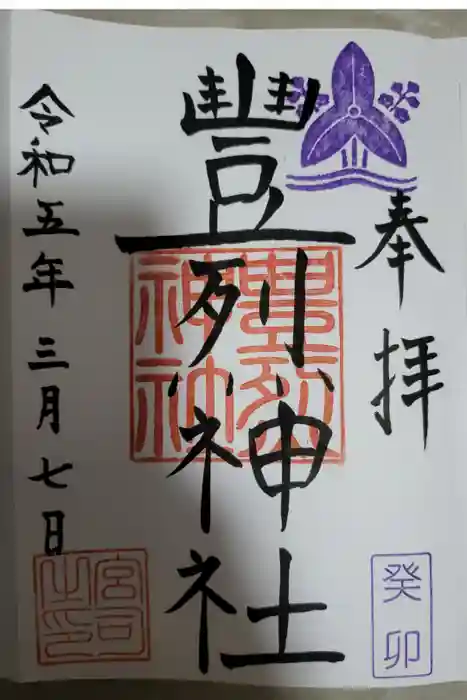 奉拝
癸卯
豐列神社
豊烈神社
令和五年三月七日
宮司之印